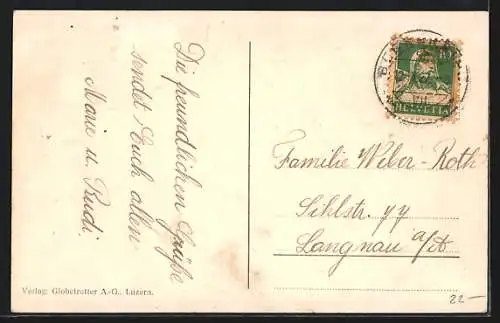 Die freundlichen Grüße
sendet Euch allen
Marie u. Rudi.
HELVETIA
Familie Weber-Roth
Sihlstr. 77
Langnau a/A
Verlag: Globetrotter A.-G., Luzern.
22-